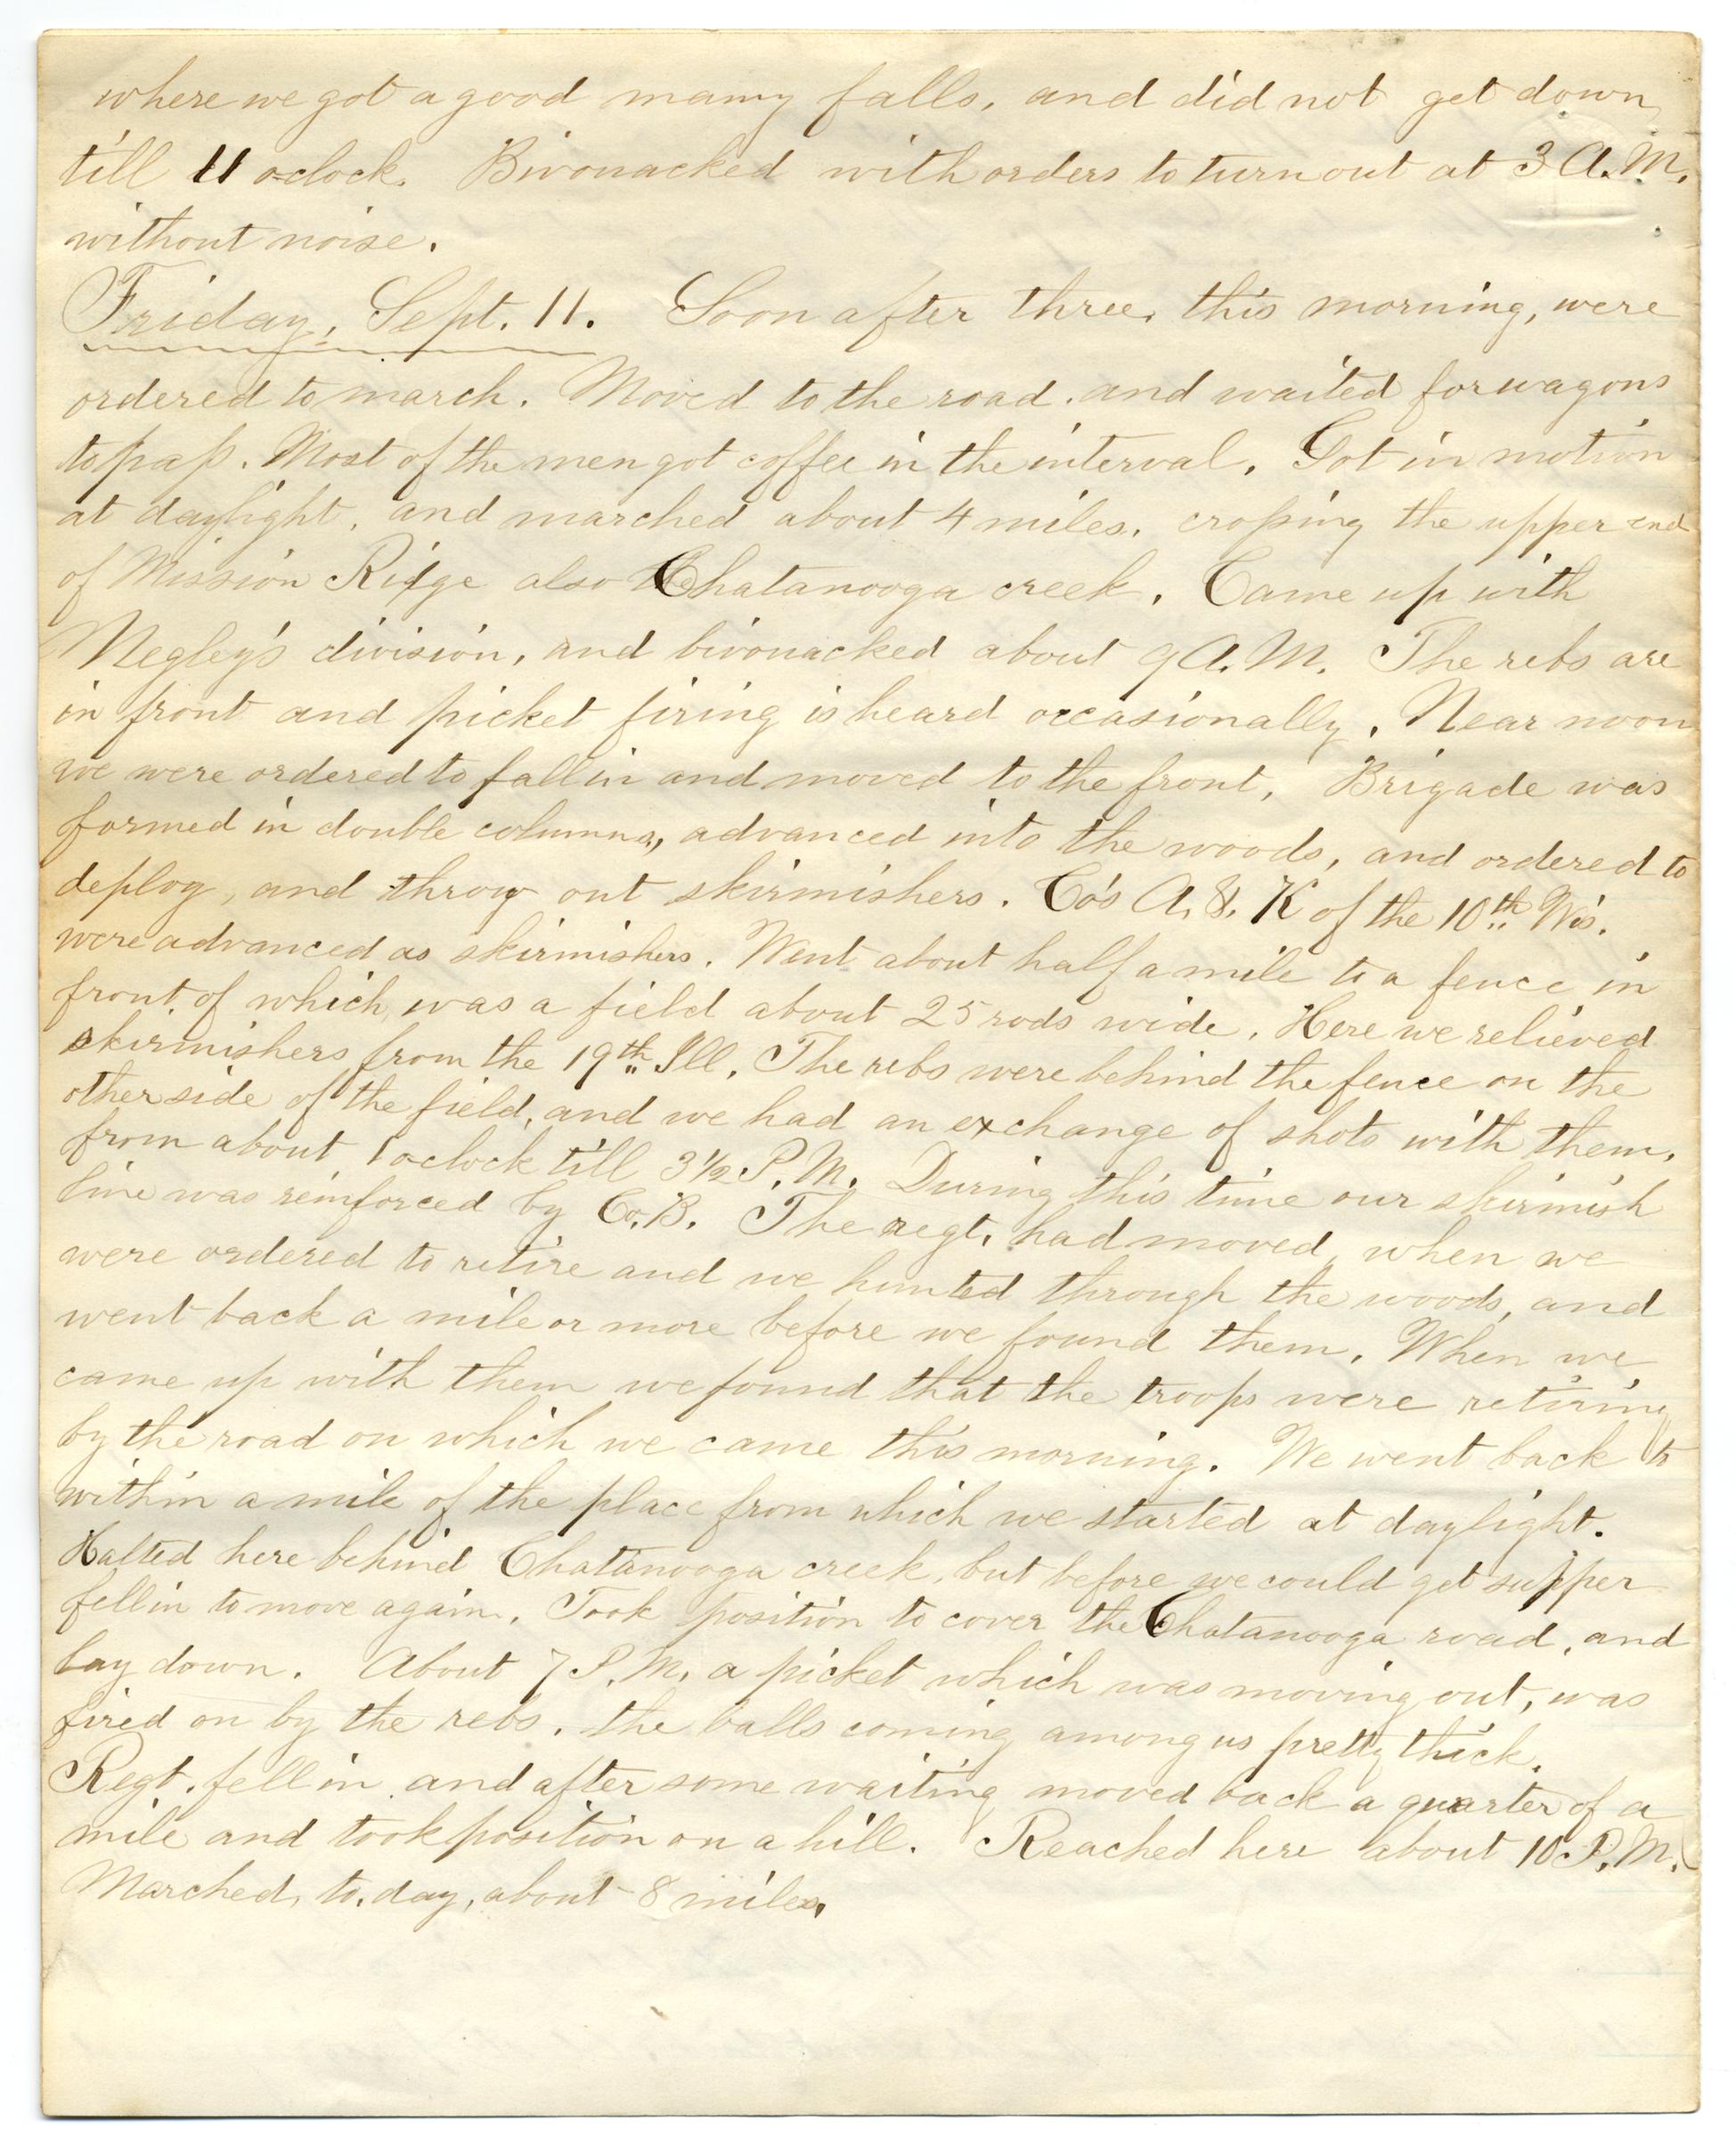 where we got a good many falls, and did not get down
till 11 oclock. Bivouacked with orders to turn out at 3 A.M.
without noise.
Friday, Sept. 11. Soon after three, this morning, were
ordered to march. Moved to the road, and waited for wagons
to pass. Most of the men got coffee in the interval. Got in motion
at daylight, and marched about 4 miles, crossing the upper end
of Mission Ridge also Chatanooga creek. Came up with
Negley's division, and bivouacked about 9 A.M. The rebs are
in front and picket firing is heard occasionally. Near noon
we were ordered to fall in and moved to the front. Brigade was
formed in double columns, advanced into the woods, and ordered to
deploy, and throw out skirmishers. Co's A. & K of the 10th Wis.
were advanced as skirmishers. Went about half a mile to a fence in
front of which was a field about 25 rods wide. Here we relieved
skirmishers from the 19th Ill. The rebs were behind the fence on the
other side of the field, and we had an exchange of shots with them,
from about 1 oclock till 3 1/2 P.M. During this time our skirmish
line was reinforced by Co. B. The regt. had moved, when we
were ordered to retire and we hunted through the woods, and
went back a mile or more before we found them. When we
came up with them we found that the troops were retiring
by the road on which we came this morning. We went back to
within a mile of the place from which we started at daylight.
Halted here behind Chatanooga creek, but before we could get supper
fell in to move again. Took position to cover the Chatanooga road, and
lay down. About 7 P.M. a picket which was moving out, was
fired on by the rebs, the balls coming among us pretty thick.
Regt. fell in and after some waiting moved back a quarter of a
mile and took position on a hill. Reached here about 10 P.M.
Marched, to.day, about 8 miles.